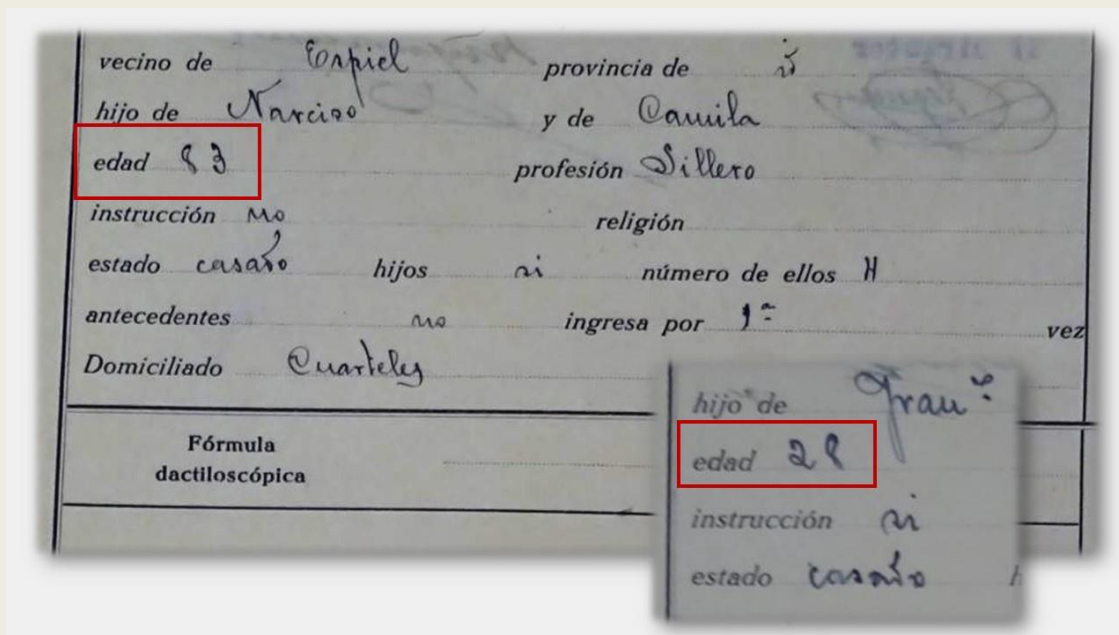 vecino de Espiel provincia de id
hijo de Narciso y de Camila
edad 83 profesión Sillero
instrucción no religión
estado casado hijos si número de ellos 4
antecedentes no ingresa por 1ª vez
Domiciliado Cuarteles
Fórmula
dactiloscópica
hijo de Franº
edad 28
instrucción si
estado casado h